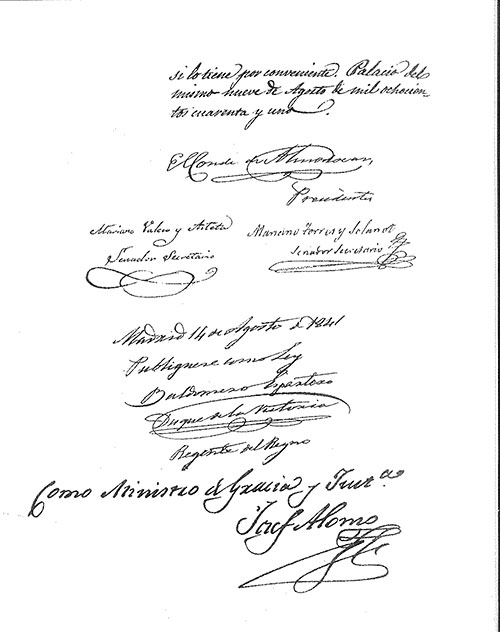 si lo tiene por conveniente. Palacio del
mismo nueve de Agosto de mil ochocien-
tos cuarenta y uno.
El Conde de Almodovar,
Presidente
Mariano Valero y Arteta
Senador Secretario
Marciso Torres y Solanot
Senador Secretario
Madrid 14 de Agosto de 1841
Publiquese como Ley
Baldomero Espartero
Duque de la Victoria
Regente del Reyno
Como Ministro de Gracia y Just.ª
José Alonso